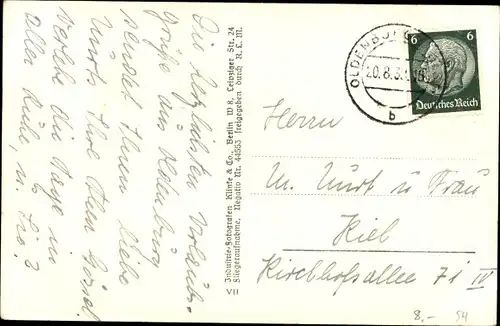 Die herzlichsten Urlaubs-
grüße aus Oldenburg
sendet Ihnen liebe
Wurts Ihre Ellen
verlebe die Tage in
aller Ruhe, u. Sie?
Industrie-Fotografen Klinke & Co., Berlin W 8, Leipziger Str. 24
Fliegeraufnahme. Negativ Nr. 44563 freigegeben durch R. L. M.
VII
OLDENBURG
20.8.3
b
6 6
Deutsches Reich
Herrn
W. Wurt u Frau
Kiel
Kirchhofsallee 71 IV
8,- S4